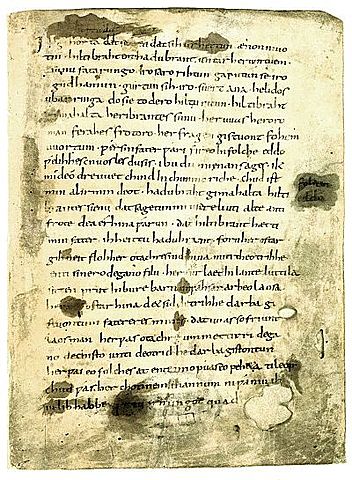 Ik gihorta đat seggen đat sih urhettun ænon muo
tin · hiltibraht enti hađubrant · untar heriun tuem ·
sunu fatarungo · iro saro rihtun garutun se iro
guđhamun · gurtun sih · iro · suert ana · helidos
ubar ringa do sie to dero hiltu ritun · hiltibraht
gimahalta heribrantes sunu · her uuas heroro
man ferahes frotoro · her fragen gistuont fohem
uuortum · ƿer sin fater ƿari fireo in folche eddo
ƿelihhes cnuosles du sis · ibu du mi ęnan sages · ik
mi de odre uuet chind in chunincriche · chud ist
min al irmin deot · hadubraht gimahalta hilti
brantes sunu dat sagetun mi usere liuti alte anti
frote dea erhina ƿarun · dat hiltibrant hætti
min fater · ih heittu hadubrant · forn her ostar
gihueit floh her otachres nid hina miti theotrihhe
enti sinero degano filu · her furlaet in lante luttila
sitten prut in bure barn unwahsan arbeo laosa ·
heraet ostar hina det sid detrihhe darba gi
stuontum fateres mines · dat uuas so friunt
laos man her ƿas otachre ummet tirri dega
no dechisto unti deotrichhe darba gistontun
her ƿas eo folches at ente imo ƿuas eo feheta ti leop ·
chud ƿas her chonnem mannum ni ƿaniu ih
iu lib habbe ƿettu irmingot quad